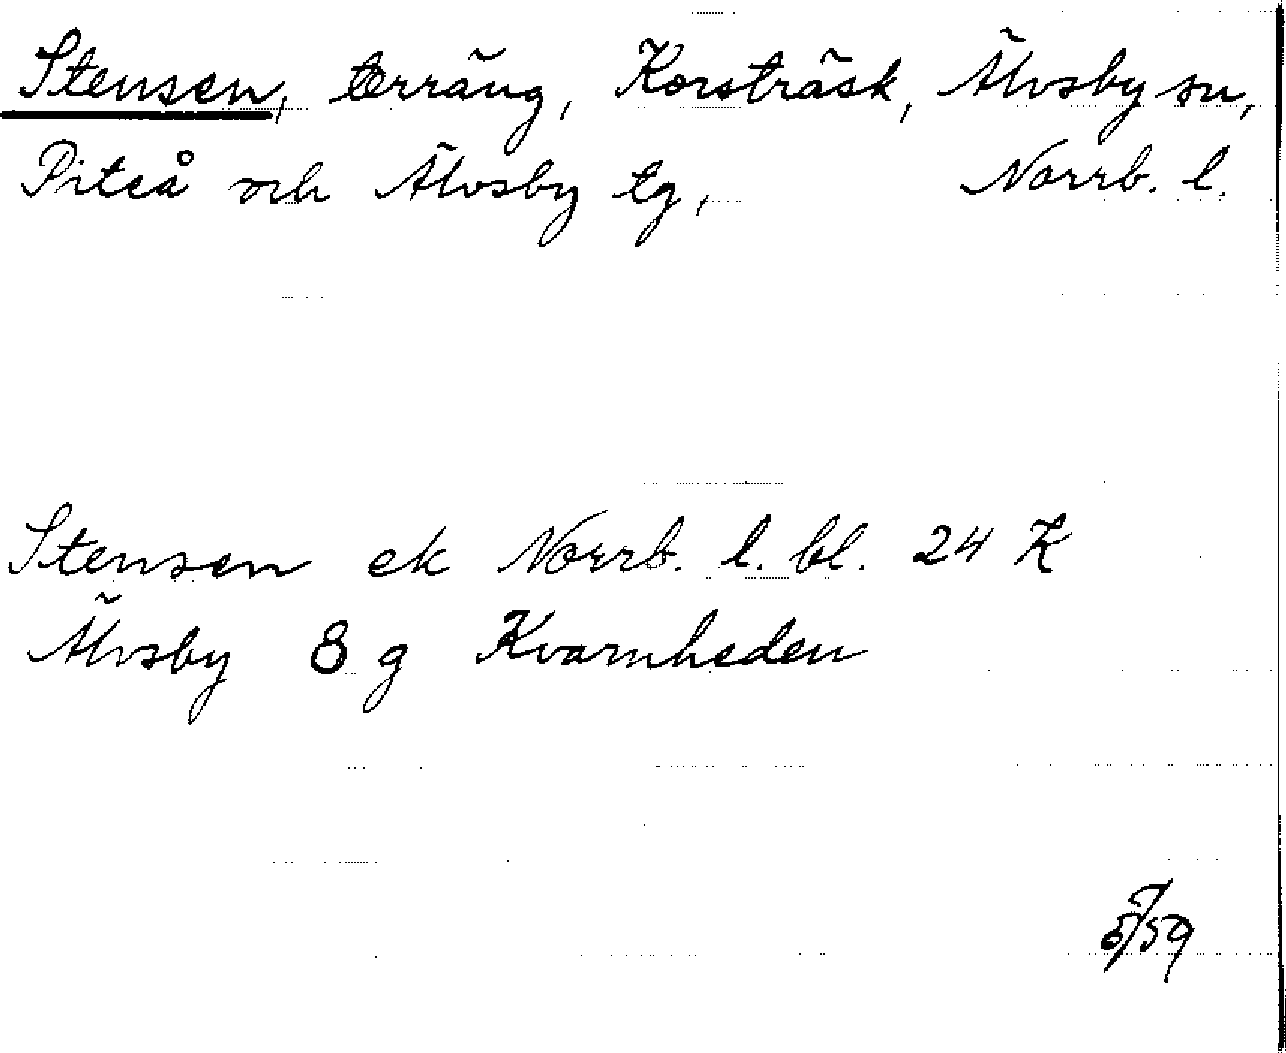 Stensen, terräng, Korsträsk, Älvsby sn,
Piteå och Älvsby tg, Norrb. l.
Stensen ek Norrb. l. bl. 24 K
Älvsby 8 g Kvarnheden